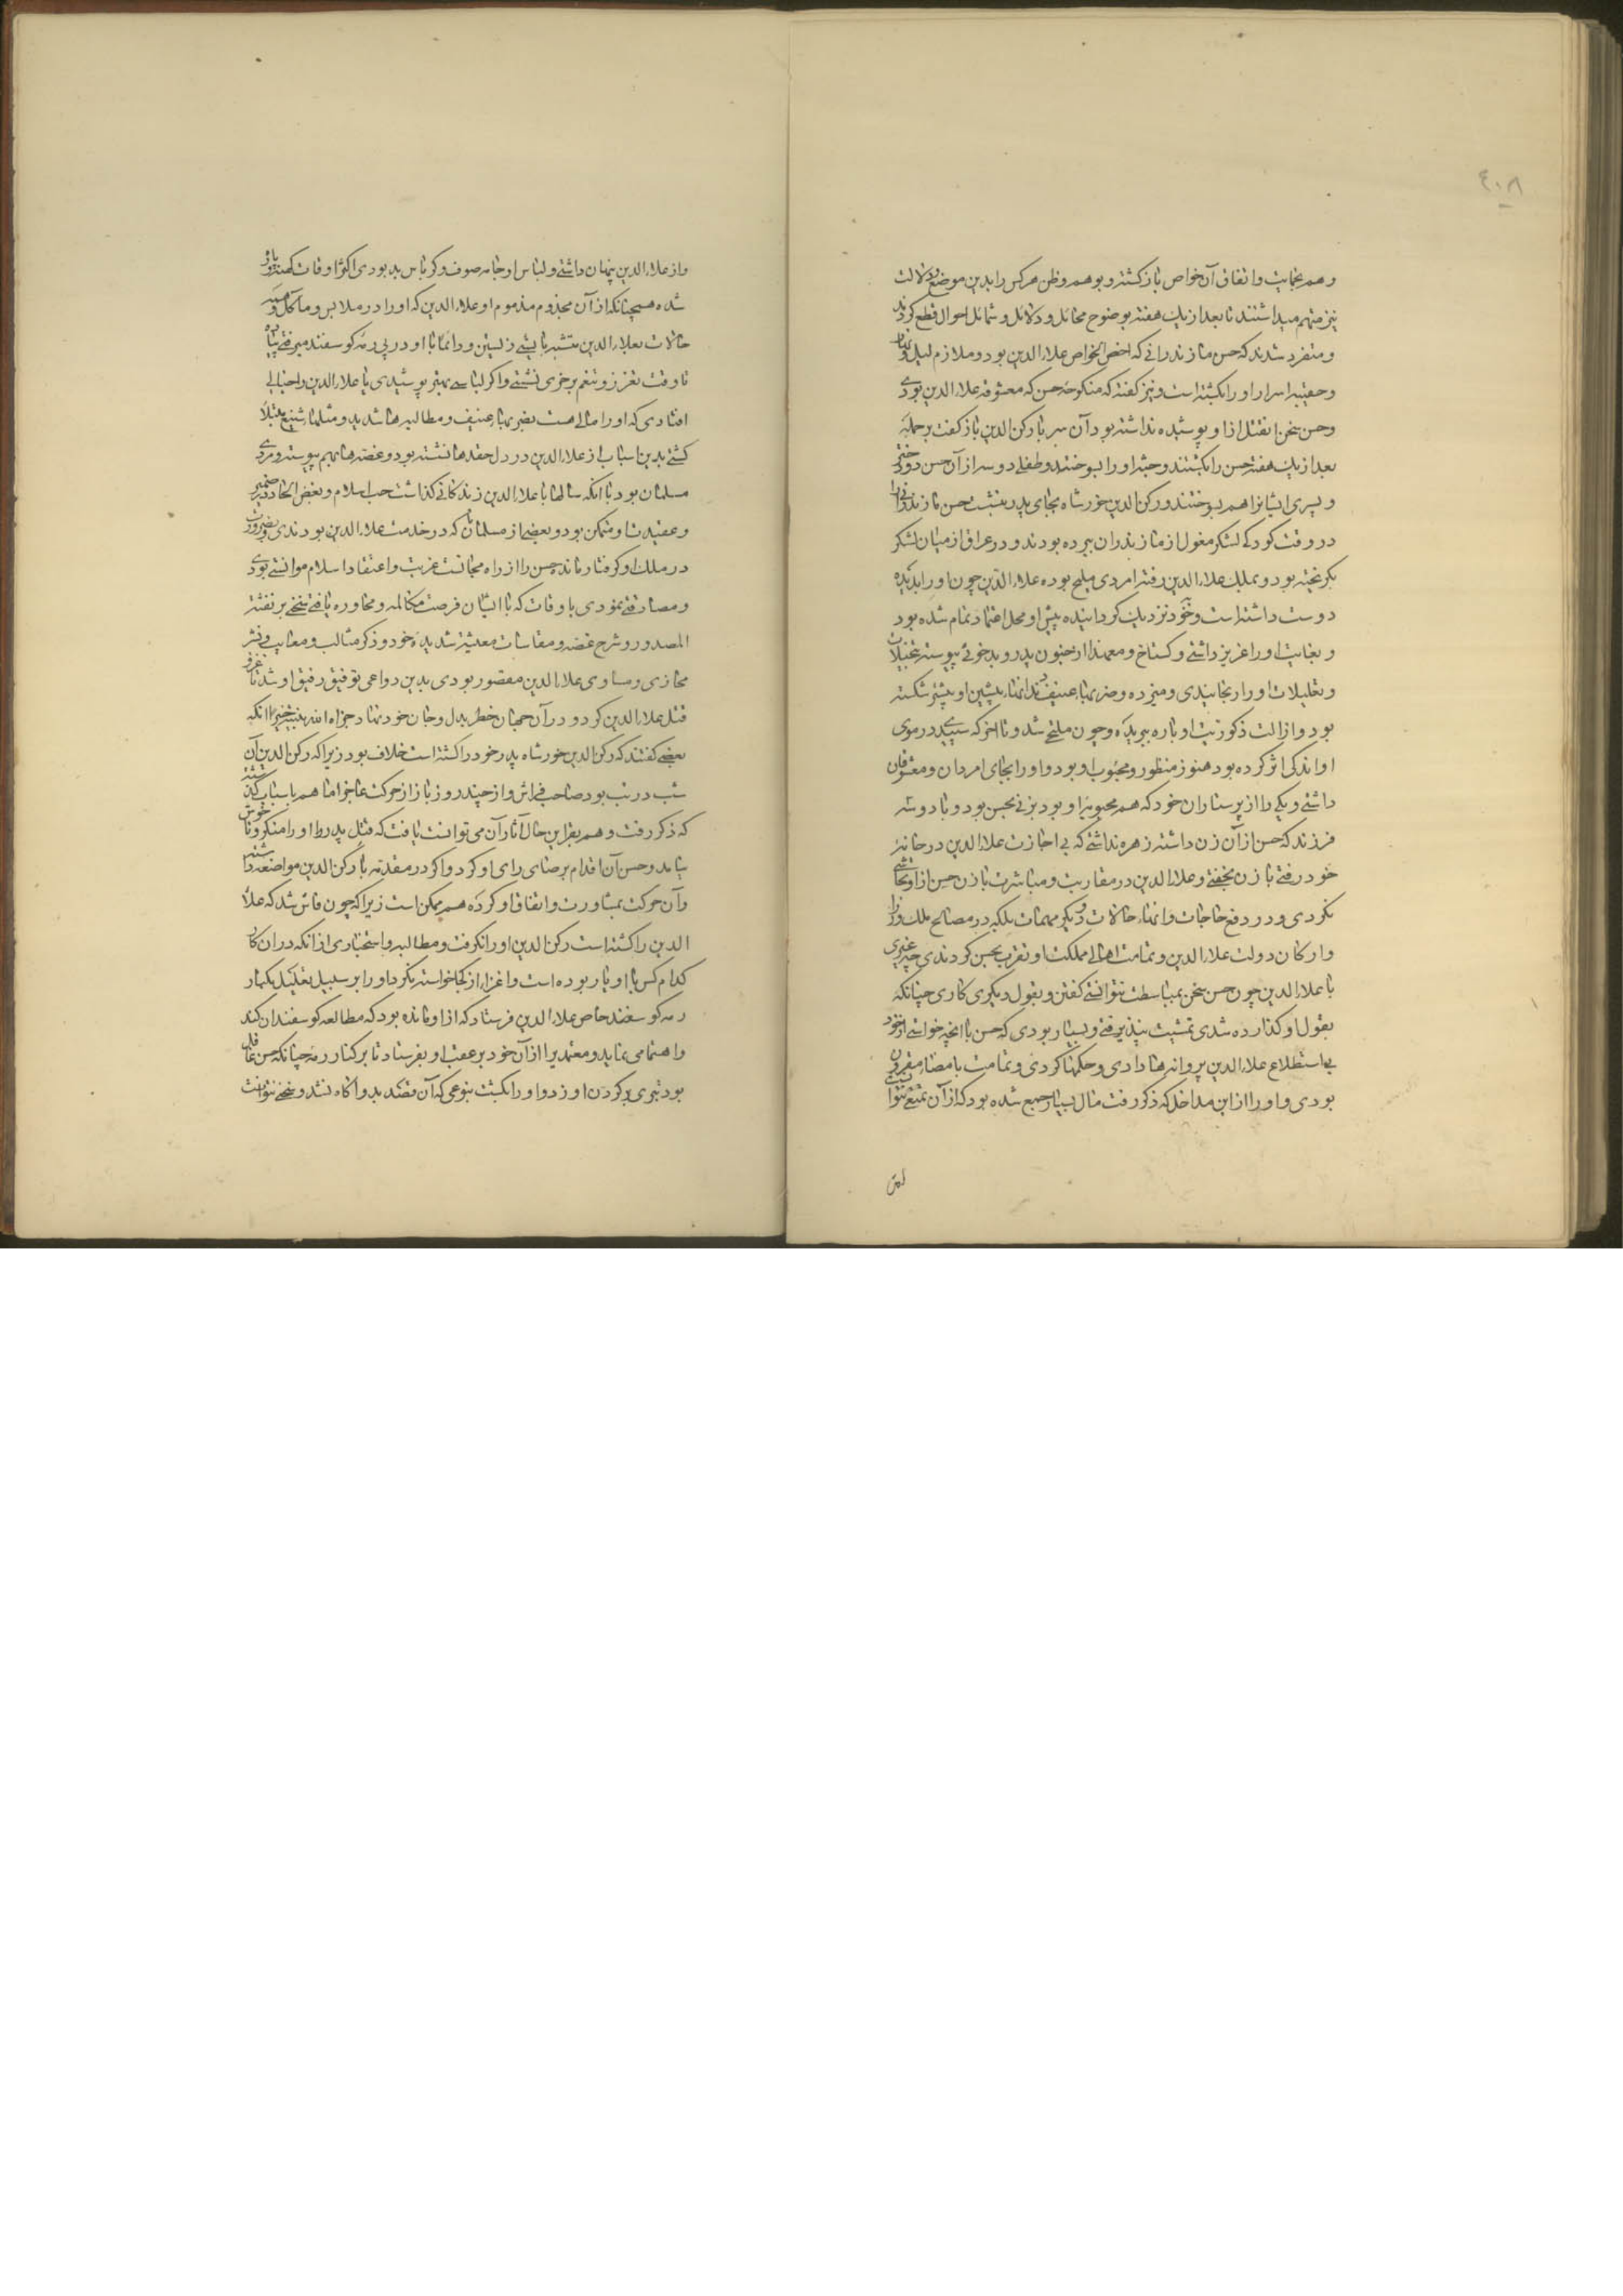 ٤٠٨
و هم بخانت و اتفاق آن خواص باز کشته و بوهم و ظن هر کس را بدین موضع دلالت
نیز متهم میداشتند تا بعد از یک هفته بوضوح مخائل و دلائل و شمائل احوال قطع کردند
و متفرد شدند که حسن مازندرانی که اخص الخواص علاء الدین بود و ملازم لیل و نهار
و حقیبه اسرار او را بکشته است و نیز کفته که منکوحه حسن که معشوقه علاء الدین بودی
و حسن سخن قتل از او پوشیده نداشته بود آن سر با رکن الدین باز کفت بر جمله
بعد از یک هفته حسن را بکشتند و جثه او را بسوختند و طفلی دو سه از آن حسن دو دختر
و پسری ایشانرا هم بسوختند و رکن الدین خورشاه بجای پدر بنشست حسن مازندرانی را
در وقت کودکی لشکر مغول از مازندران ببرده بودند و در عراق از میان لشکر
بکریخته بود و بملک علاء الدین رفته امردی ملیح بوده علاء الدین چون او را بدیده
دوست داشته است و بخود نزدیک کردانیده پیش او محل اعتماد تمام شده بود
و بغایت او را عزیز داشتی و کستاخ و معهذا از جنون پدر و بدخوئی پیوسته بتخیلات
و تعلیلات او را رنجانیدی و میزده و ضربهاء عنیف دندانهاء پیشین او بیشتر شکسته
بود و از الت ذکوریت او پاره ببریده و چون ملتحی شد و تا اخر که سپیدی در موی
او اندکی اثر کرده بود هنوز منظور و محبوب او بود و او را بجای امردان و معشوقان
داشتی و یکی را از پرستاران خود که هم محبوبه او بود بزنی بحسن بود و با دو سه
فرزند که حسن از آن زن داشته زهره نداشتی که بی اجازت علاء الدین در خانه
خود رفتی با زن بخفتی و علاء الدین در مقاربت و مباشرت با زن حسن از او تحاشی
نکردی و در رفع حاجات و انهاء حالات و دیکر مهمات بلکه در مصالح ملک وزرا
و ارکان دولت علاء الدین و تمامت اهالی مملکت او تقرب بحسن کردندی چه غیری
با علاء الدین چون حسن سخن بمباسطت نتوانستی کفتن و بقول دیکری کاری چنانکه
بقول او کذارده شدی تمشیت نپذیرفتی و بسیار بودی که حسن با انچه خواستی از خود
بی استطلاع علاء الدین پروانه ها دادی و حکمها کردی و تمامت بامضاء مقرون
بودی و او را از این مداخل که ذکر رفت مال بسیار جمع شده بود که از آن تمتعی نتوانست

و از علاء الدین پنهان داشتی و لباس او جامه صوف و کرباس بد بودی اکثر اوقات کهنه و پاره
شده همچنانکه از آن مجذوم مذموم او علاء الدین که او را در ملابس و مآکل و همه
حالات بعلاء الدین متشبه بایستی زیستن و دائما با او در پی رمه کوسفند میرفتی پیاده
تا وقت تعزز و تنعم بر خری نشستی و اکر لباسی بهتر پوشیدی با علاء الدین را خیالی
افتادی که او را مالی هست بضربهاء عنیف و مطالبه ها شدید و مثلهاء شنیع مبتلا
کشتی بدین اسباب از علاء الدین در دل حقدها نشسته بود و غصه ها بهم پیوسته و مردی
مسلمان بود با انکه سالها با علاء الدین زندکانی کذاشت حب اسلام و بغض الحاد در ضمیر
و عقیدت او متمکن بود و بعضی از مسلمانان که در خدمت علاء الدین بودندی و بضرورت
در ملک او کرفتار مانده حسن را از راه مجانست غربت و اعتقاد اسلام موانستی بودی
و مصادقتی نمودی باوقات که با ایشان فرصت مکالمه و محاوره یافتی سخنی بر نفثة
المصدور و شرح غصه و مقاسات معیشت شدیده خود و ذکر مثالب و معایب و نشر
مخازی و مساوی علاء الدین مقصور بودی بدین دواعی توفیق رفیق او شد تا غزو
قتل علاء الدین کرد و در آن جهان خطر بدل و جان خود نهاد جزاه الله بنیته خیرا انکه
بعضی کفتند که رکن الدین خورشاه پدر خود را کشته است خلاف بود زیرا که رکن الدین آن
شب در تب بود صاحب فراش و از چند روز باز از حرکت عاجز اما هم باسباب کذشته
که ذکر رفت و هم بقراین حال آثار آن می توانست یافت که قتل پدر را او را منکر و ناخوش
نیامد و حسن آن اقدام برضای رای او کرد و اکر در مقدمه با رکن الدین مواضعه داشته
و آن حرکت بمشاورت و اتفاق او کرده هم ممکن است زیرا که چون فاش شد که علاء
الدین را کشته است رکن الدین او را نکرفت و مطالبه و استخباری از انکه در ان کار
کدام کس با او یار بوده است و اغراء از کجا خواسته نکرد او را بر سبیل تعلیل بکبار
رمه کوسفند خاص علاء الدین فرستاد که از او مانده بود که مطالعه کوسفندان کند
و اهتمامی نماید و معتمدی را از آن خود بر عقب او بفرستاد تا بر کنار رمه چنانکه حسن غافل
بود تبری بر کردن او زد و او را بکشت بنوعی که آن قصد بدو اکاه نشد و سخنی نتوانست